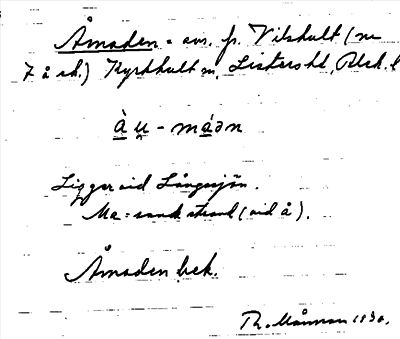 Åmaden = avs. fr. Vilshult (nr
7 å ek.) Kyrkhult sn, Listers hd, Blek. l
àu̯ - máən
Ligger vid Långasjön.
Ma = sandstrand (vid å).
Åmaden bek.
Th. Månsson 1930.